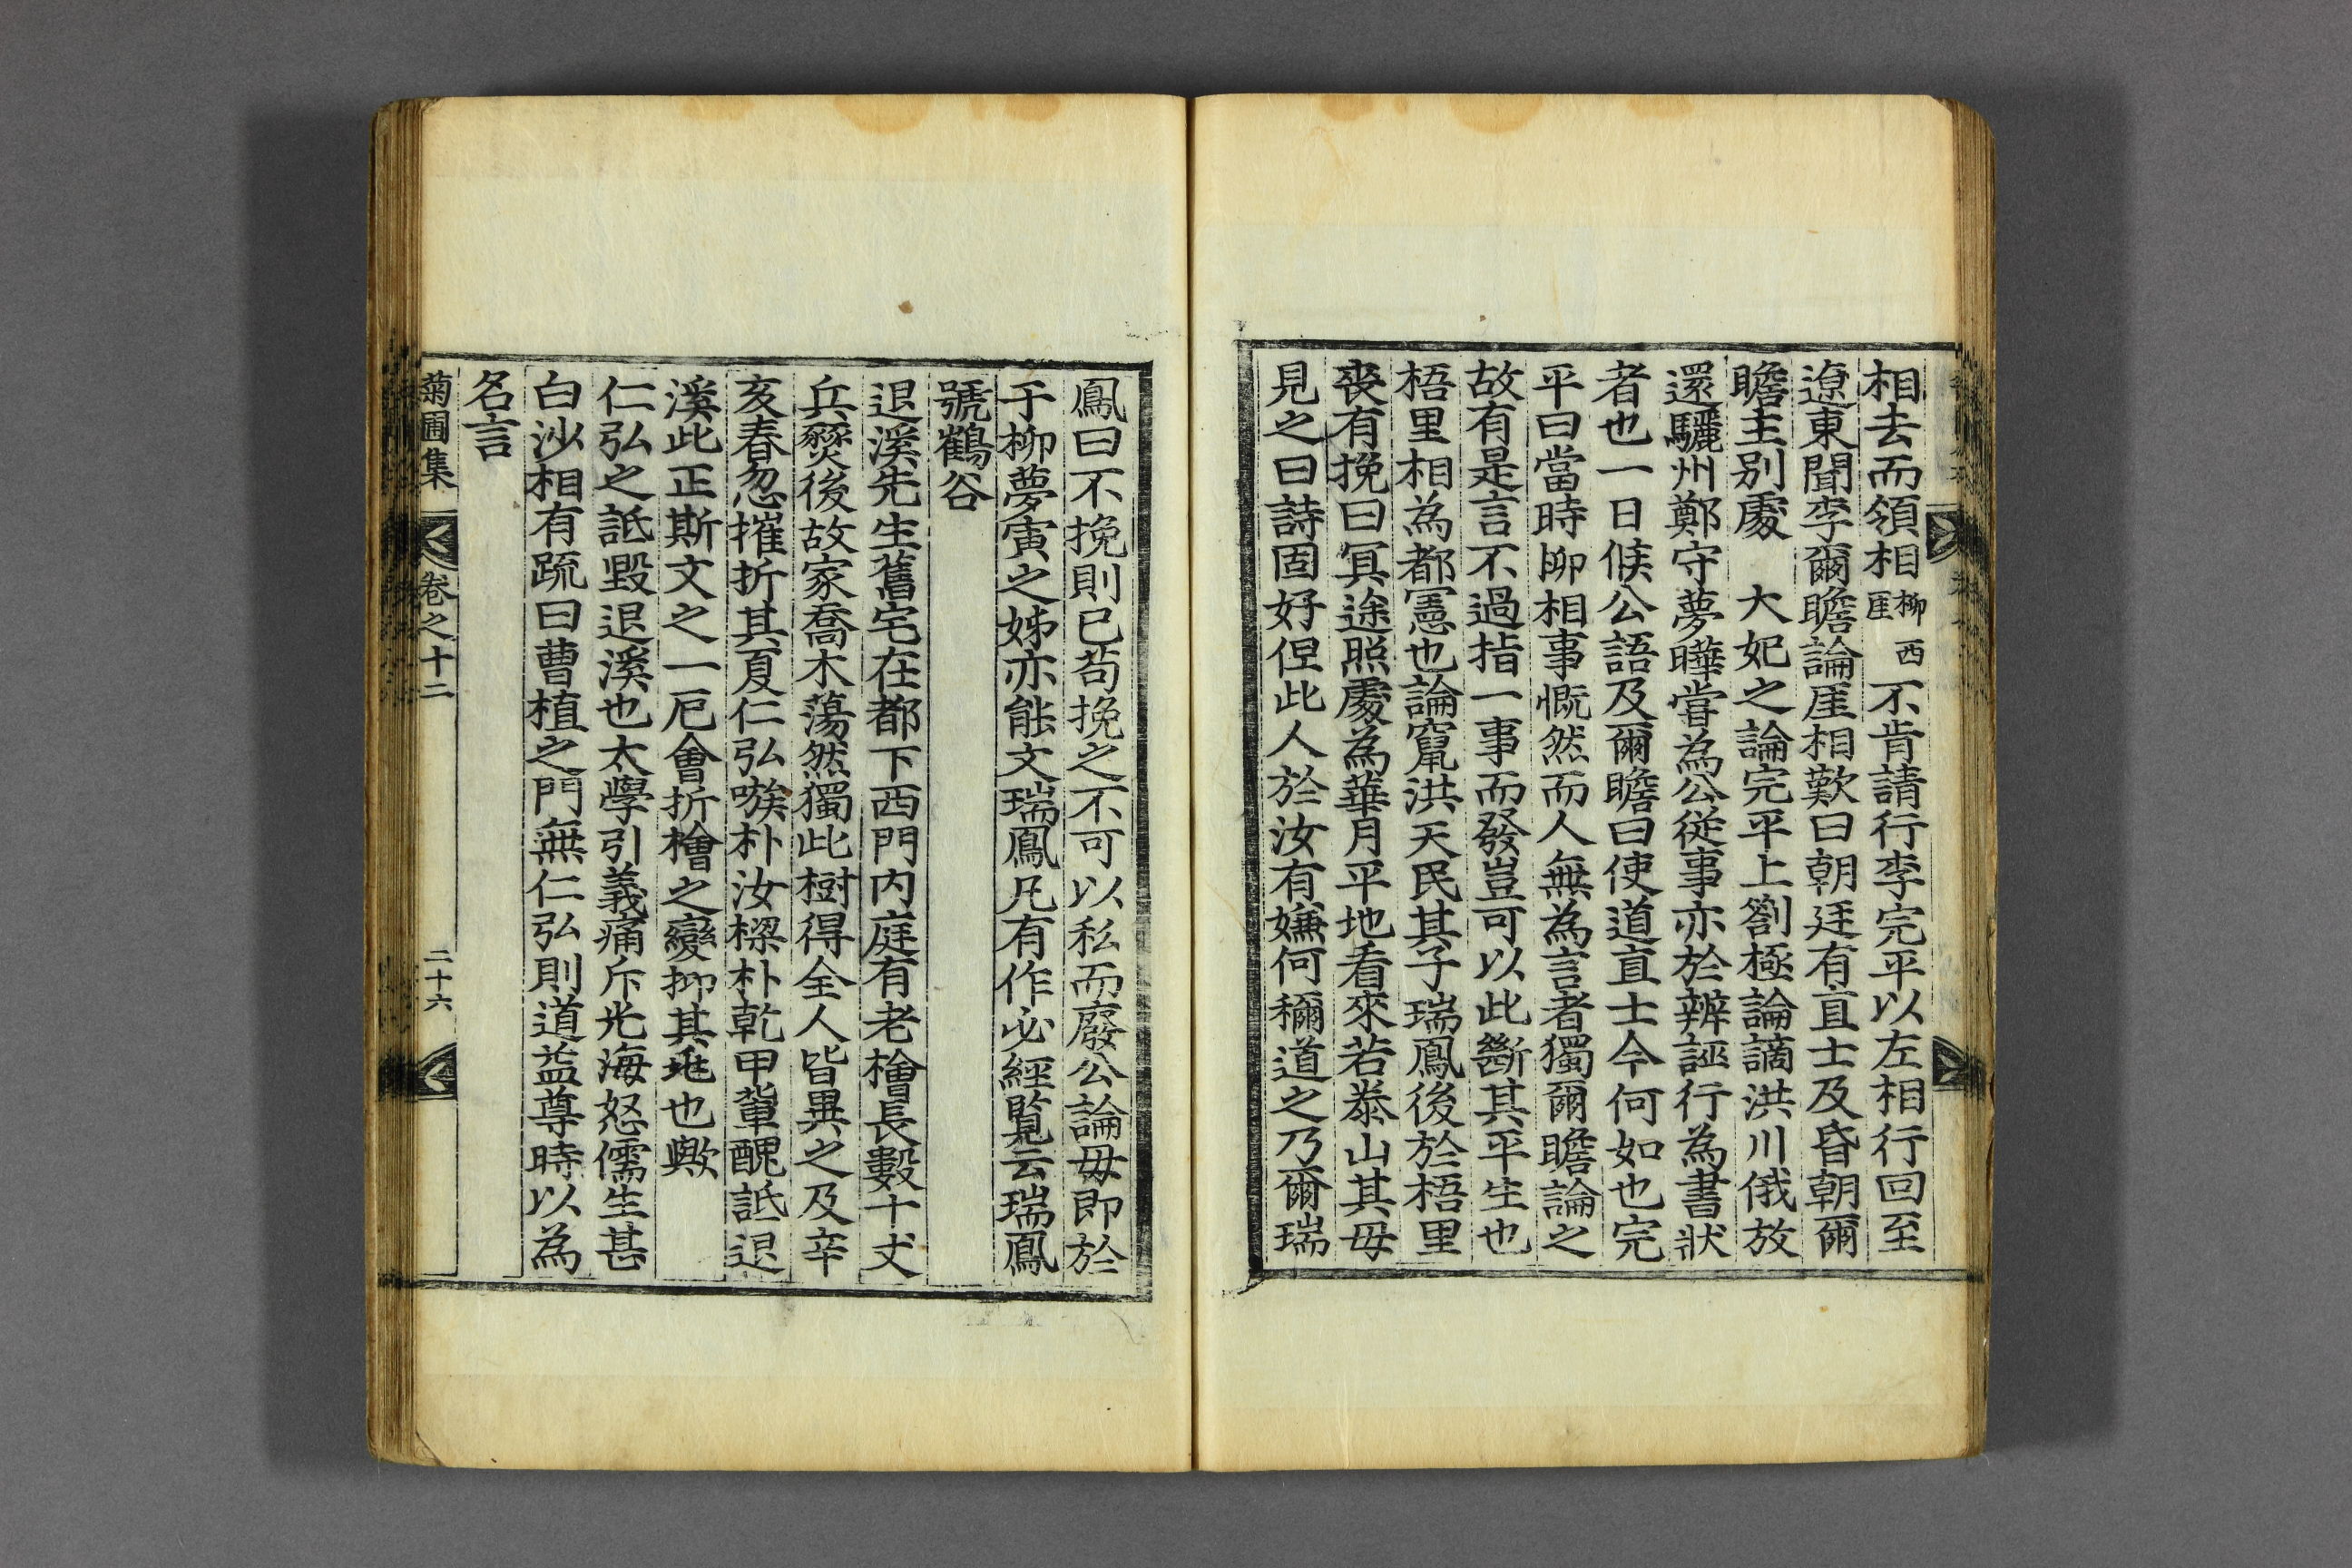 相去而領相柳西厓不肯請行李完平以左相行回至
遼東聞李爾瞻論厓相歎曰朝廷有直士及昏朝爾
瞻主別處　大妃之論完平上劄極論謫洪川俄放
還驪州鄭守夢曄嘗為公從事亦於辨誣行為書狀
者也一日候公語及爾瞻曰使道直士今何如也完
平曰當時柳相事慨然而人無為言者獨爾瞻論之
故有是言不過指一事而發豈可以此斷其平生也
梧里相為都憲也論竄洪天民其子瑞鳳後於梧里
喪有挽曰冥途照處為華月平地看來若泰山其母
見之曰詩固好但此人於汝有嫌何稱道之乃爾瑞
鳳曰不挽則已苟挽之不可以私而廢公論毋即於
于柳夢寅之姊亦能文瑞鳳凡有作必經覧云瑞鳳
號鶴谷
退溪先生舊宅在都下西門內庭有老檜長數十丈
兵燹後故家喬木蕩然獨此樹得全人皆異之及辛
亥春忽摧折其夏仁弘嗾朴汝樑朴乾甲軰醜詆退
溪此正斯文之一厄會折檜之變抑其兆也歟
仁弘之詆毀退溪也太學引義痛斥光海怒儒生甚
白沙相有䟽曰曹植之門無仁弘則道益尊時以為
名言
菊圃集　卷之十二　二十六